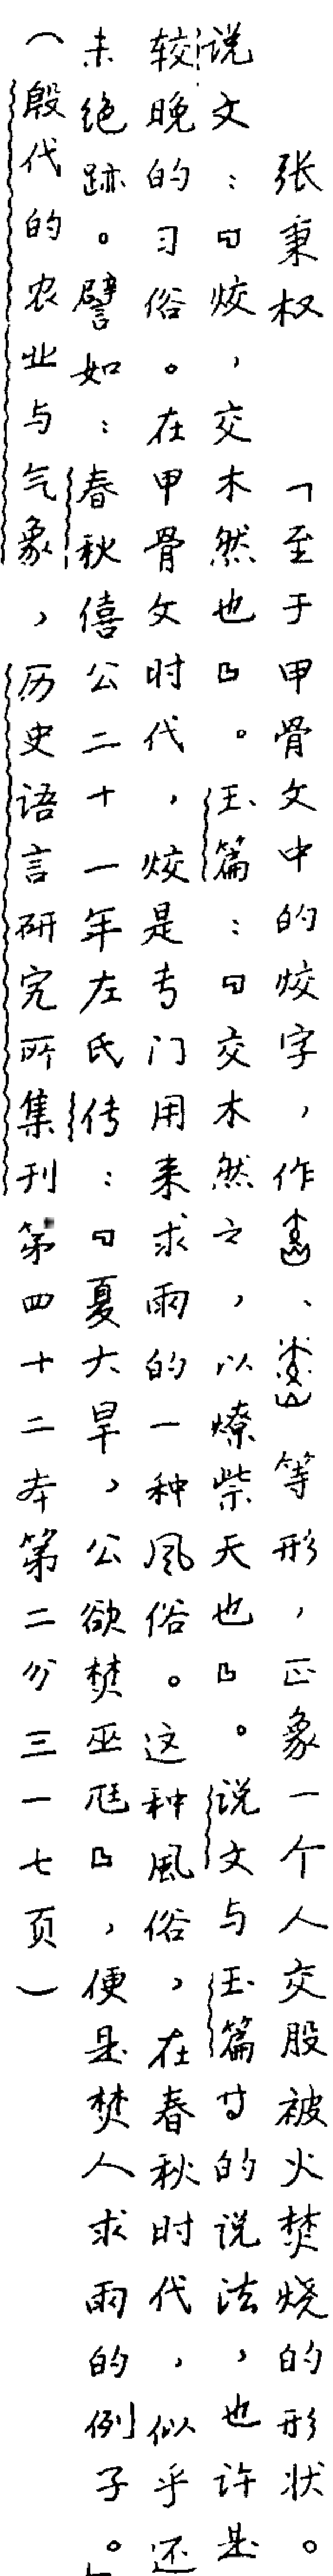 张秉权 「至于甲骨文中的烄字，作、等形，正象一个人交股被火焚烧的形状。
说文：『烄，交木然也』。玉篇：『交木然之，以燎柴天也』。说文与玉篇中的说法，也许是
较晚的习俗。在甲骨文时代，烄是专门用来求雨的一种风俗。这种風俗，在春秋时代，似乎还
未绝跡。譬如：春秋僖公二十一年左氏传：『夏大旱，公欲焚巫尫』，便是焚人求雨的例子。」
（殷代的农业与气象，历史语言研究所集刊第四十二本第二分三一七页）